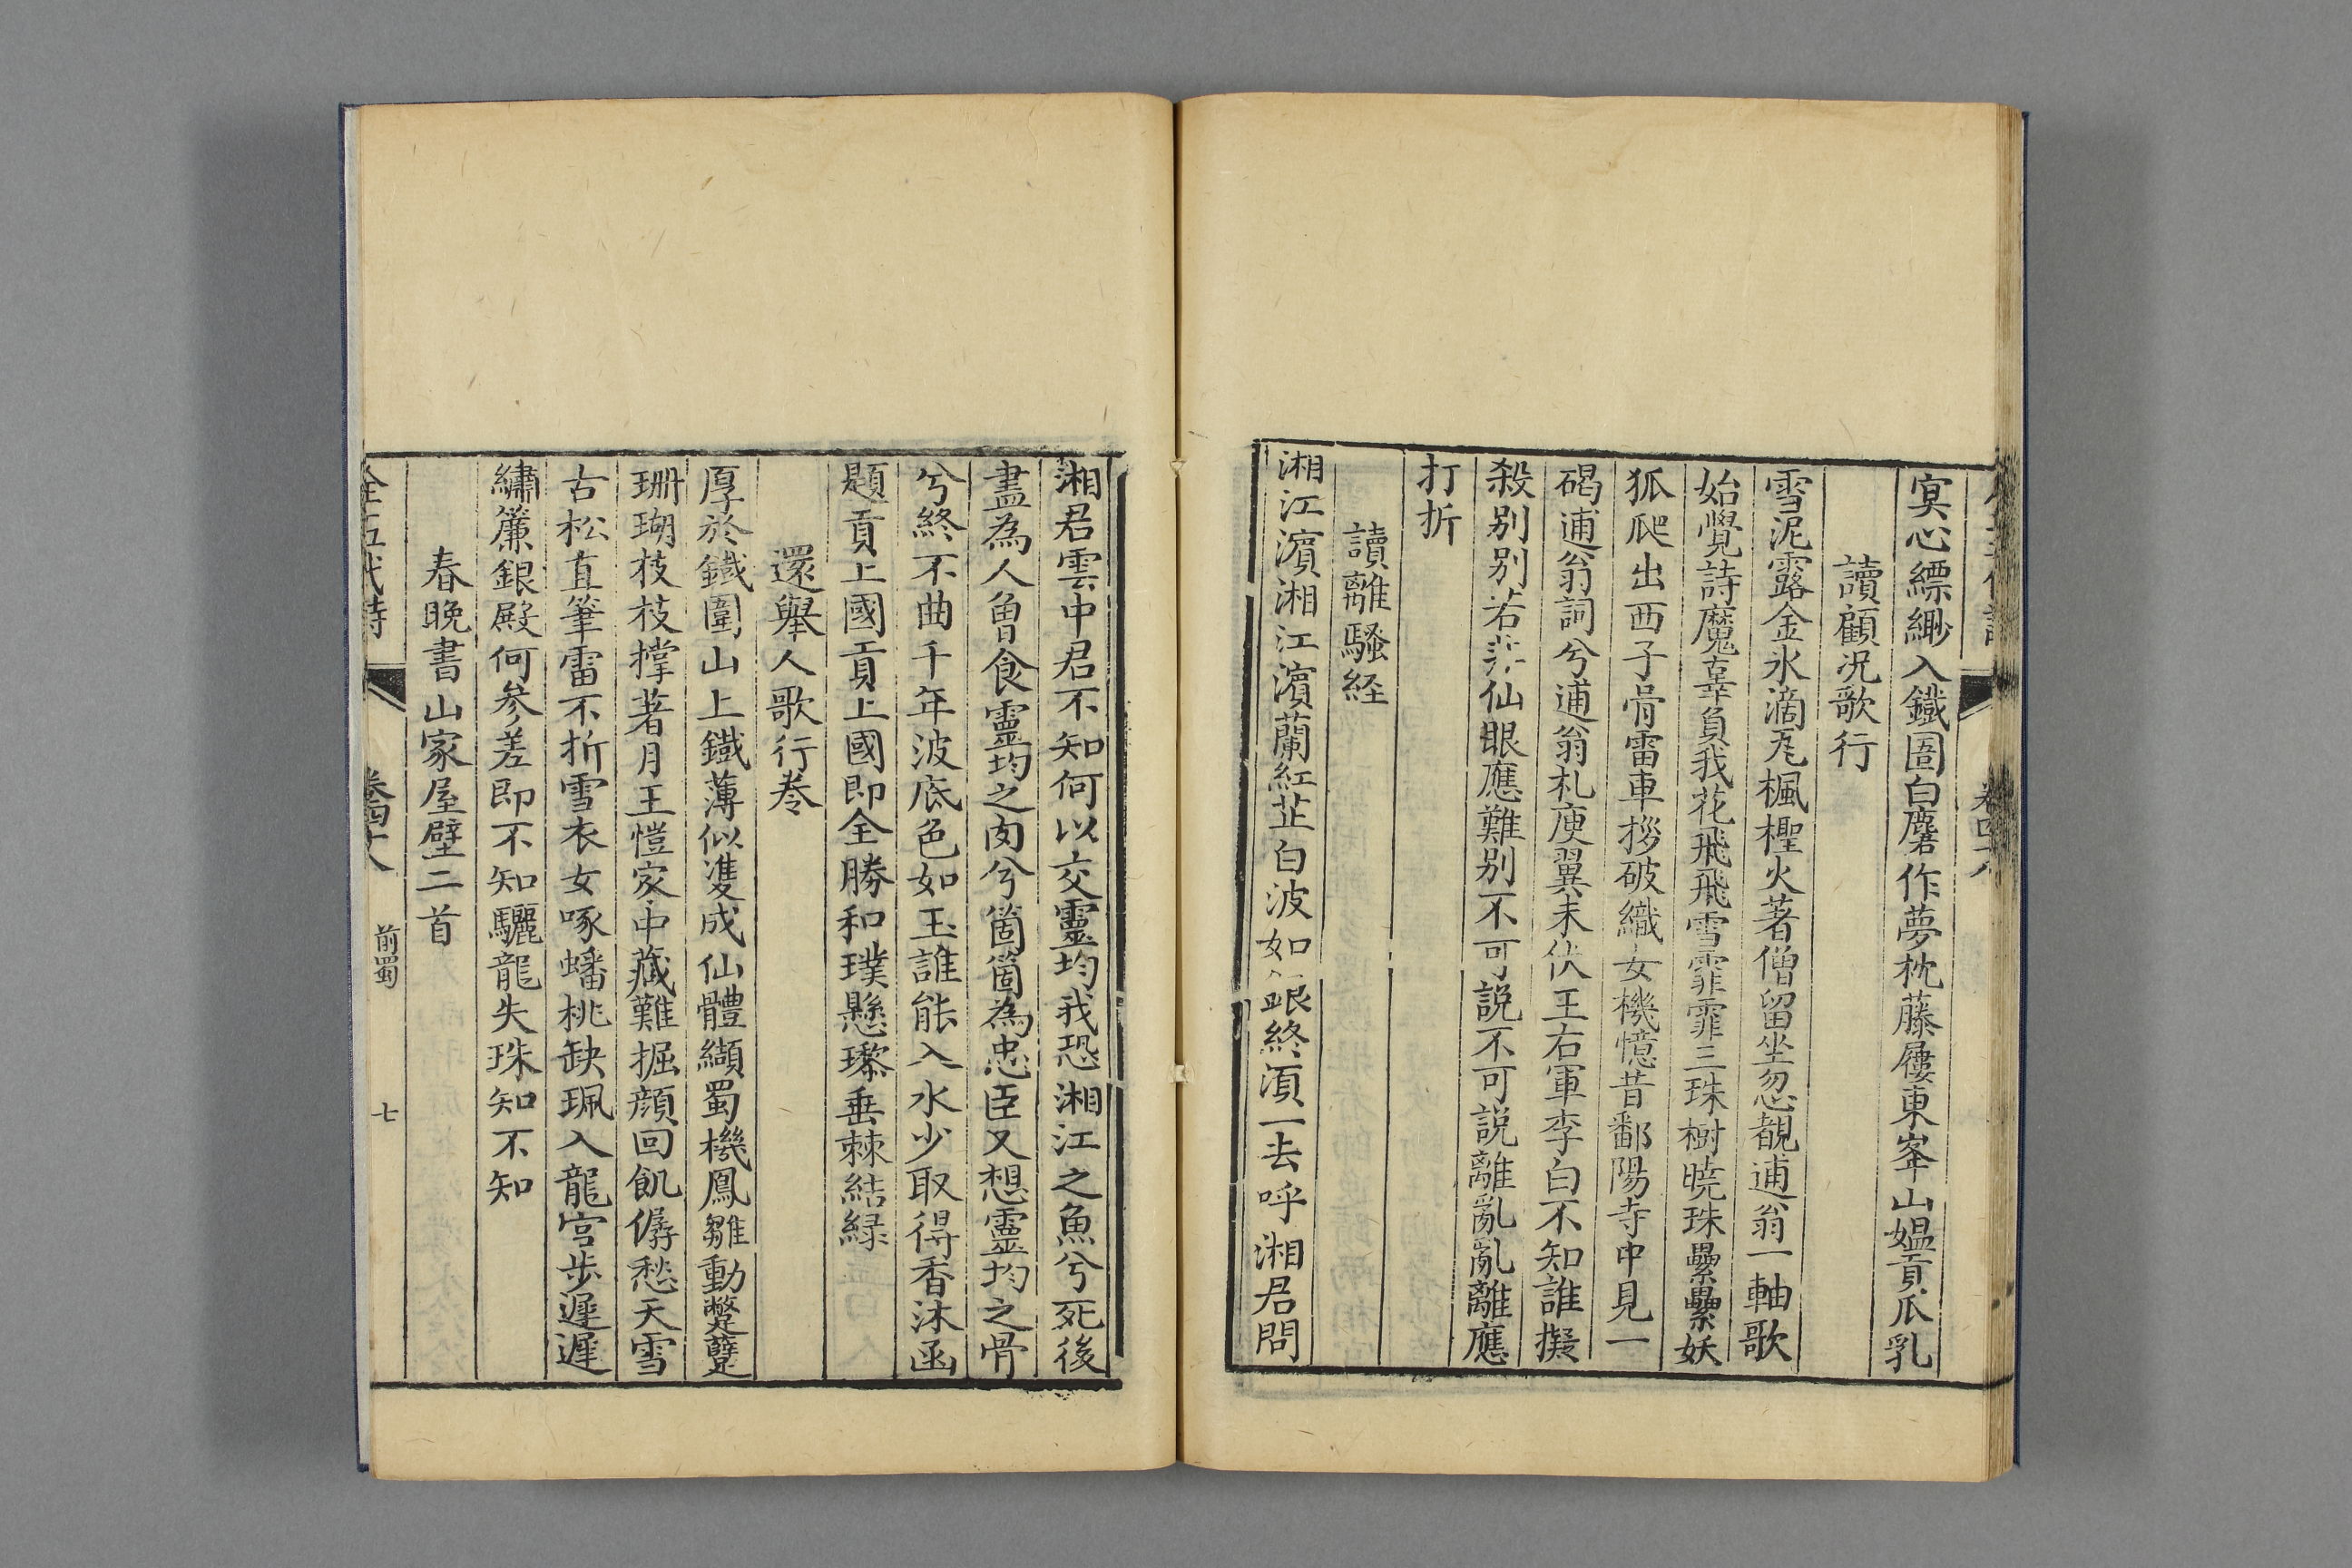 冥心縹緲入鐵圍白麞作夢枕藤屨東峯山媪貢瓜乳
讀顧況歌行
雪泥露金氷滴瓦楓檉火著僧留坐忽覩逋翁一軸歌
始覺詩魔辜負我花飛飛雪霏霏三珠樹曉珠纍纍妖
狐爬出西子骨雷車拶破織女機憶昔鄱陽寺中見一
碣逋翁詞兮逋翁札庾翼未伏王右軍李白不知誰擬
殺别别若非仙眼應難别不可說不可說離亂亂離應
打折
讀離騷経
湘江濵湘江濵蘭紅芷白波如銀終湏一去呼湘君問
湘君雲中君不知何以交靈均我恐湘江之魚兮死後
盡為人曾食靈均之肉兮箇箇為忠臣又想靈均之骨
兮終不曲千年波底色如玉誰能入水少取得香沐函
題貢上國貢上國即全勝和璞懸璆垂棘結緑
還舉人歌行卷
厚於鐵圍山上鐵薄似𩀱成仙體纈蜀機鳳雛動蹩躠
珊瑚枝枝撑著月王愷家中藏難掘顔回飢僝愁天雪
古松直筆雷不折雪衣女啄蟠桃缺珮入龍宫步遲遲
繡簾銀殿何參差即不知驪龍失珠知不知
春晚書山家屋壁二首
全五代詩
卷四十八
前蜀
七